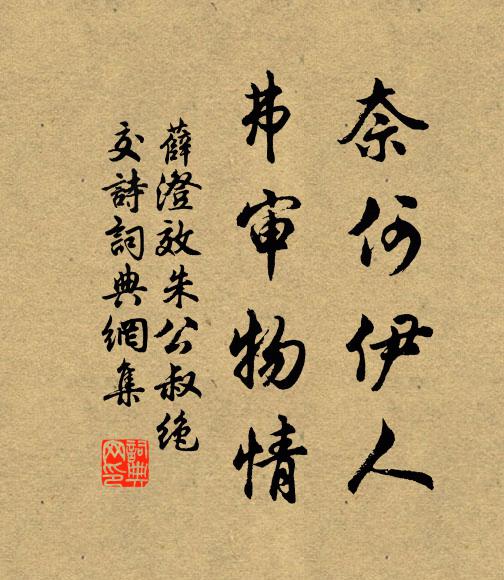 奈何伊人
弗审物情
薛澄效朱公叔绝
交詩詞典網集
詞典
网印